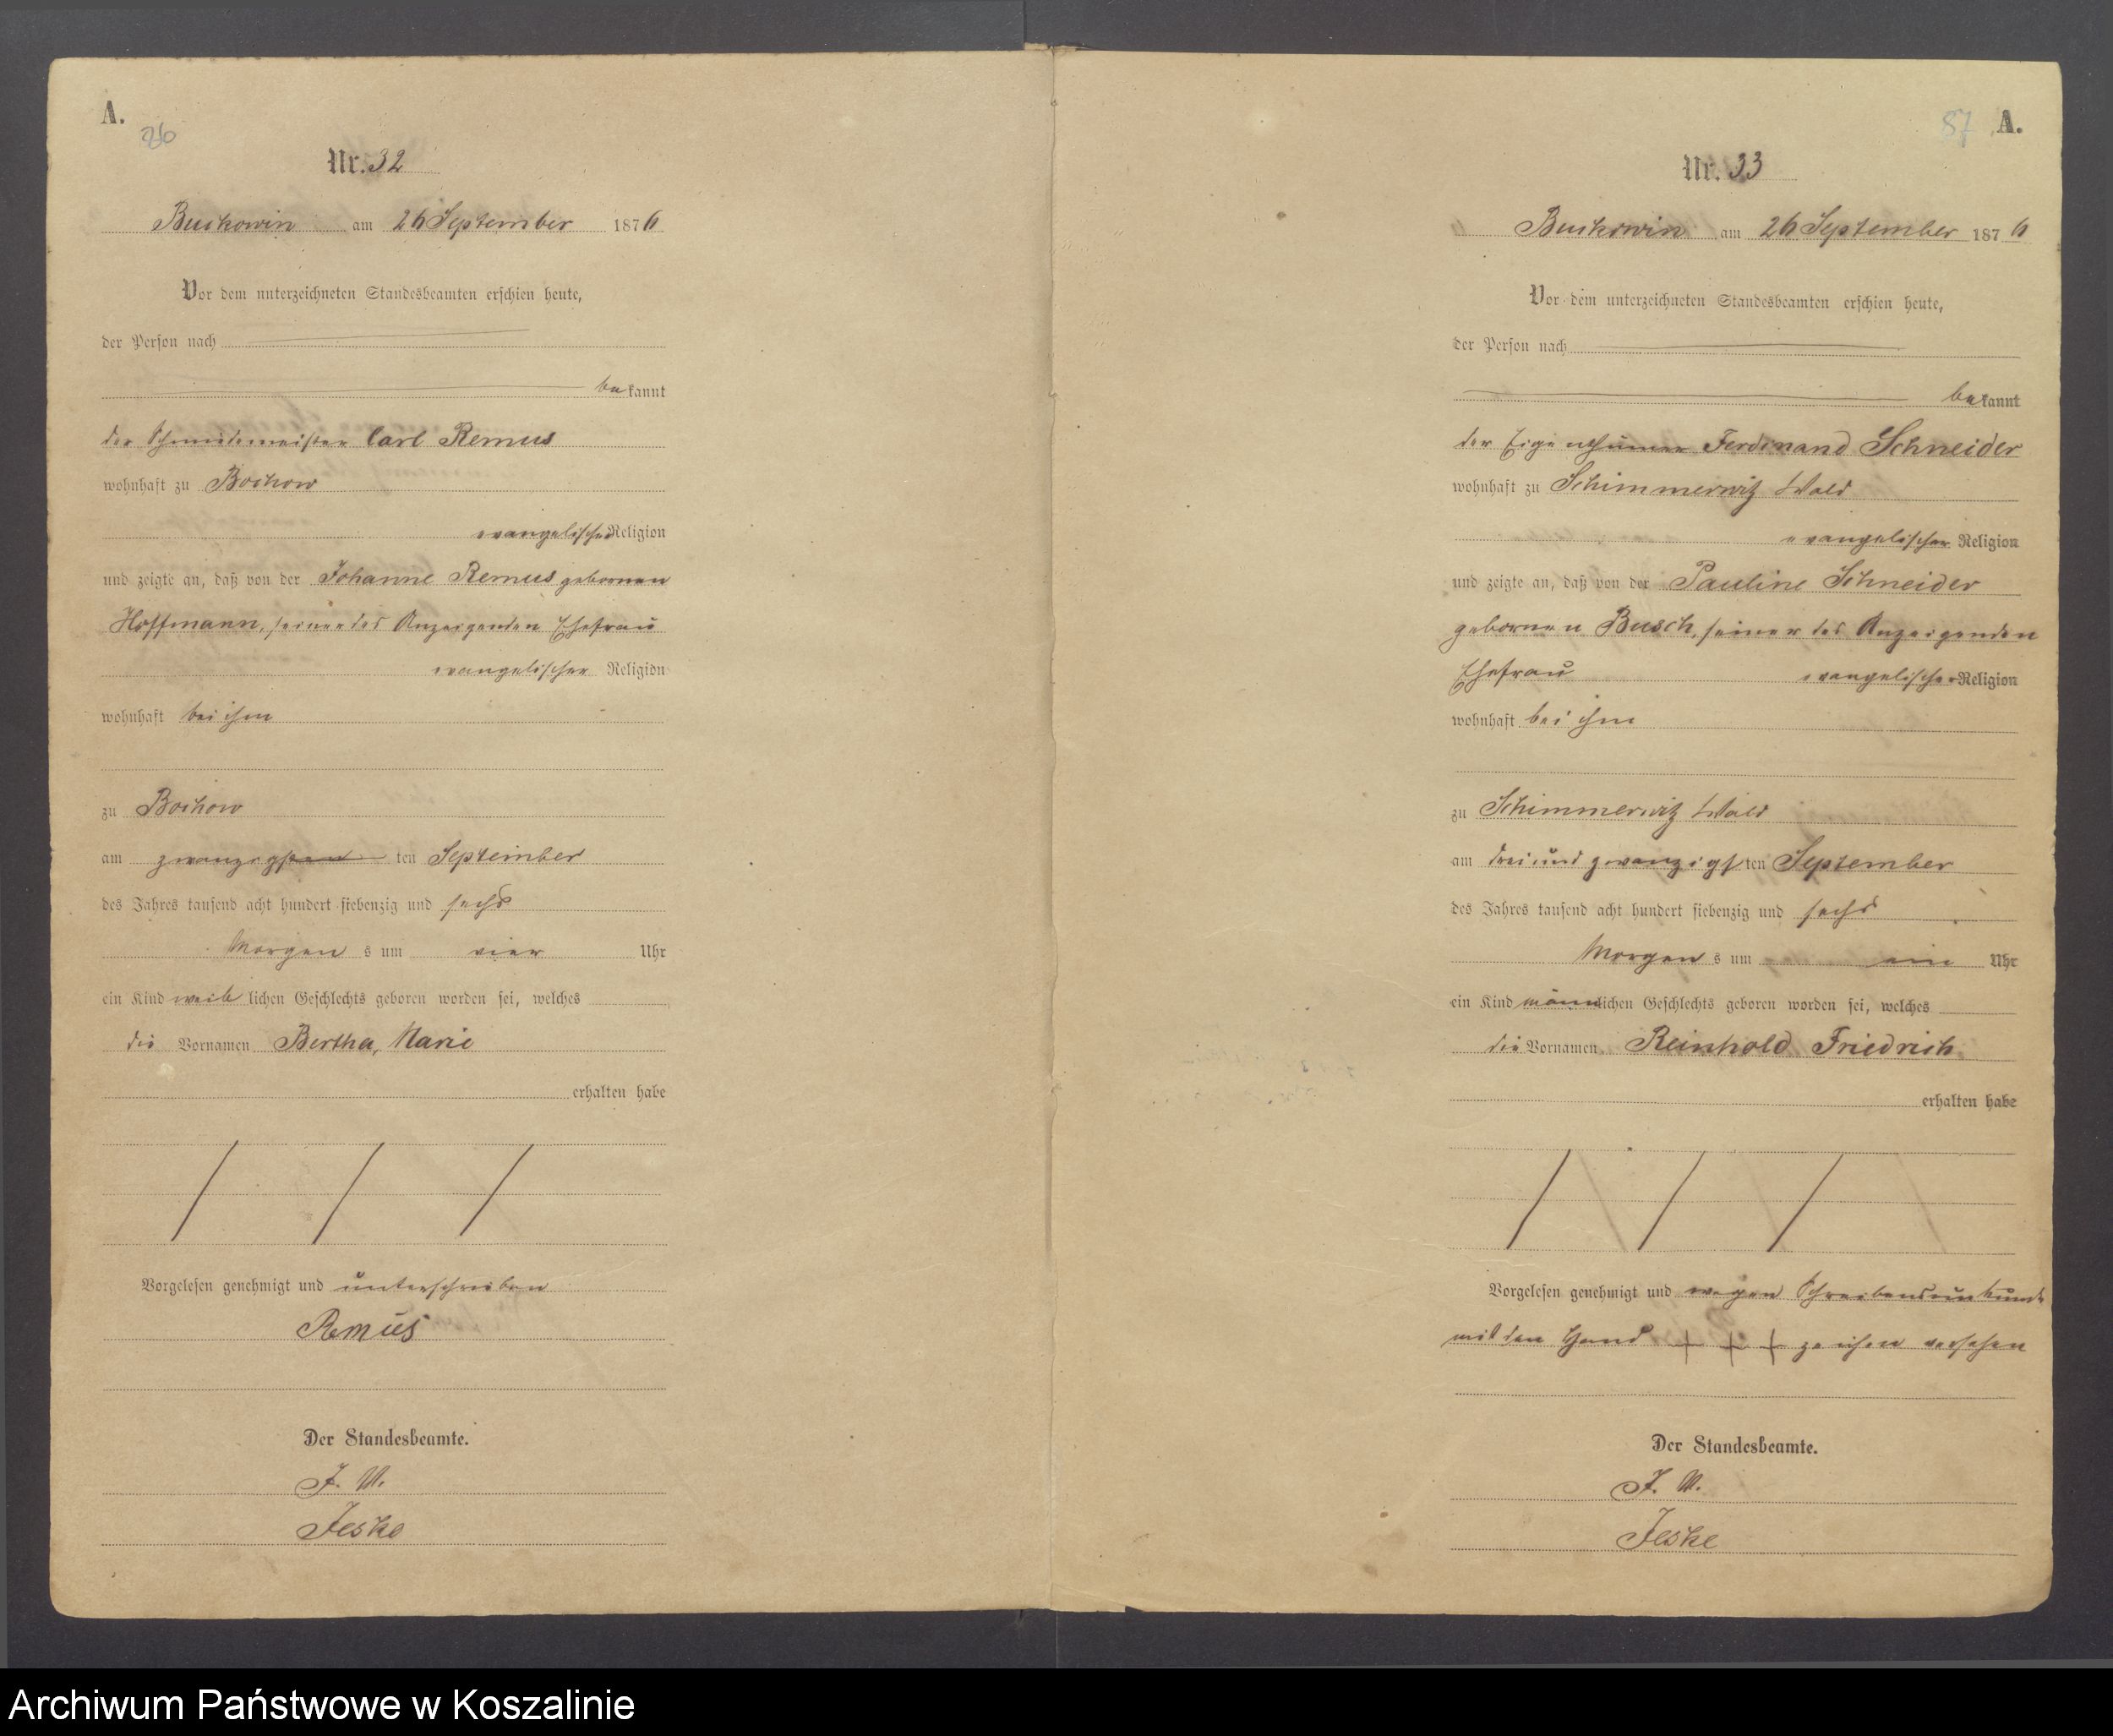 A.
Nr. 32
Buckowin am 26 September 1876
Vor dem unterzeichneten Standesbeamten erschien heute,
der Person nach
bekannt
der Schmiedemeister Carl Remus
wohnhaft zu Bochow
evangelischer Religion
und zeigte an, daß von der Johanne Remus gebornen
Hoffmann, seiner des Anzeigenden Ehefrau
evangelischer Religion
wohnhaft bei ihm
zu Bochow
am zwanzigsten ten September
des Jahres tausend acht hundert siebenzig und sechs
Morgen s um vier Uhr
ein Kind weiblichen Geschlechts geboren worden sei, welches
die Vornamen Bertha, Marie
erhalten habe
Vorgelesen genehmigt und unterschrieben
Remus
Der Standesbeamte.
J. V.
Jeske
87 A.
Nr. 33
Buckowin am 26 September 1876
Vor dem unterzeichneten Standesbeamten erschien heute,
der Person nach
bekannt
der Eigenthümer Ferdinand Schneider
wohnhaft zu Schimmerwitz Wald
evangelischer Religion
und zeigte an, daß von der Pauline Schneider
gebornen Busch, seiner des Anzeigenden
Ehefrau evangelischer Religion
wohnhaft bei ihm
zu Schimmerwitz Wald
am dreiundzwanzigsten September
des Jahres tausend acht hundert siebenzig und sechs
Morgen s um ein Uhr
ein Kind männlichen Geschlechts geboren worden sei, welches
die Vornamen Reinhold Friedrich
erhalten habe
Vorgelesen genehmigt und wegen Schreibensunkunde
mit den Hand + + + zeichen versehen
Der Standesbeamte.
J. V.
Jeske
Archiwum Państwowe w Koszalinie